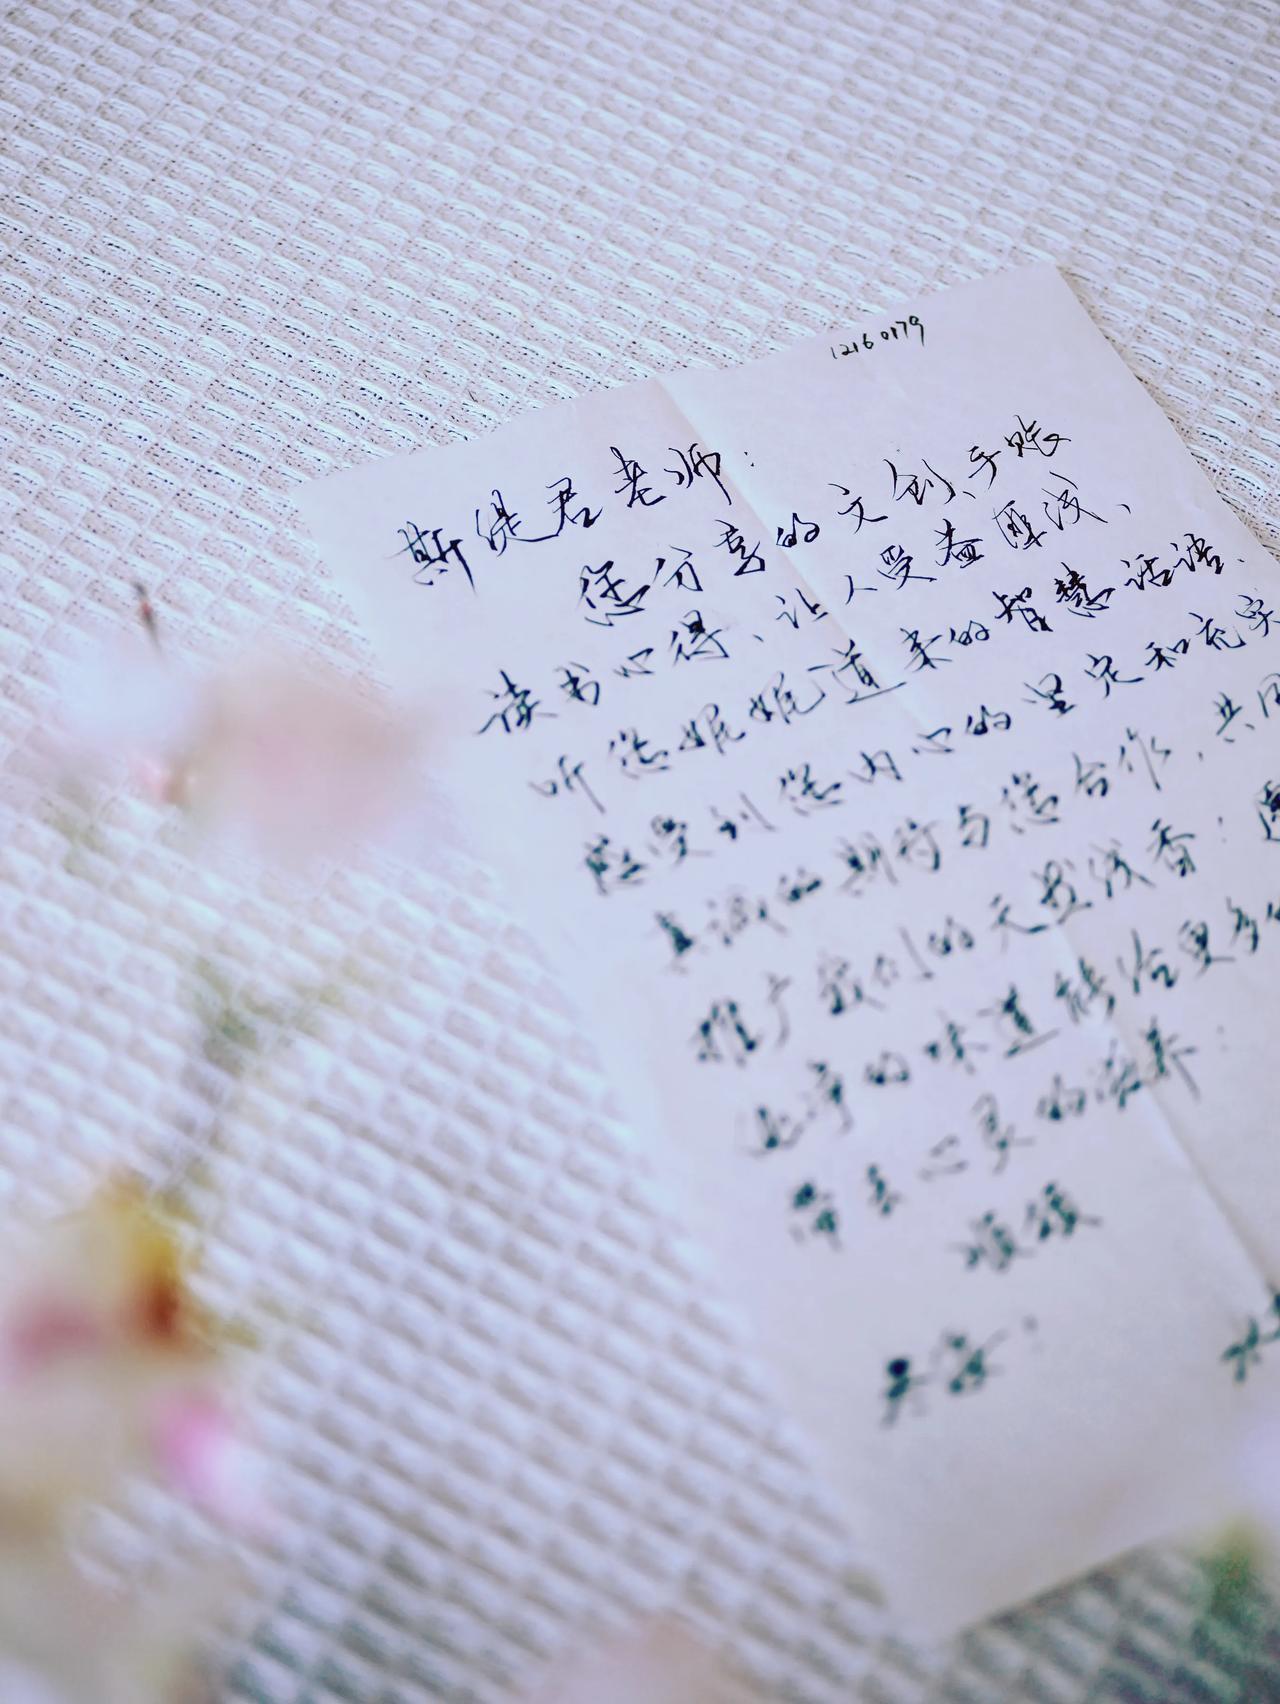 12160179
斯缇君老师：
您分享的文创、手账
读书心得、让人受益匪浅、
听您娓娓道来的智慧话语、
感受到您内心的坚定和充实
真诚的期待与您合作，共同
推广我们的天然线香：
的味道转给更多
带去心灵的滋养
顺颂